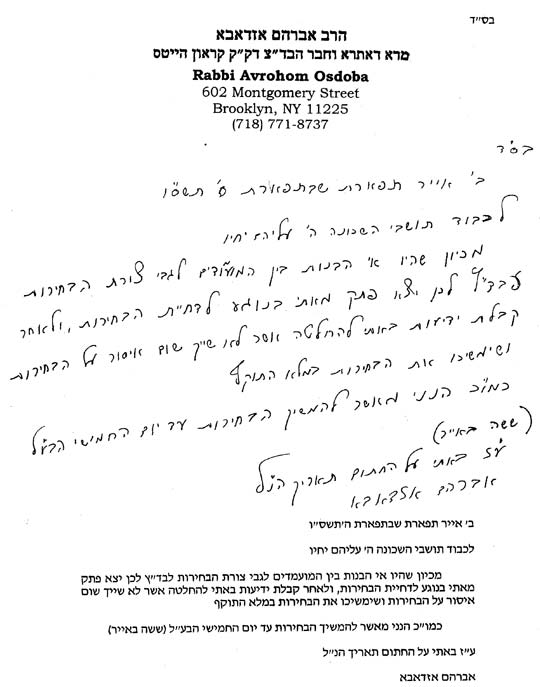 בס״ד
הרב אברהם אזדאבא
מרא דאתרא וחבר הבד״צ דק״ק קראון הייטס
Rabbi Avrohom Osdoba
602 Montgomery Street
Brooklyn, NY 11225
(718) 771-8737
בס״ד
ב' אייר תפארת שבתפארת ה' תשס״ו
לכבוד תושבי השכונה ה' עליהם יחיו
מכיון שהיו אי הבנות בין המועמדים לגבי צורת הבחירות
לבד״ץ לכן יצא פתק מאתי בנוגע לדחיית הבחירות, ולאחר
קבלת ידיעות באתי להחלטה אשר לא שייך שום איסור על הבחירות
ושימשיכו את הבחירות במלא התוקף
כמו״כ הנני מאשר להמשיך הבחירות עד יום החמישי הבע״ל
(ששה באייר)
ע״ז באתי על החתום תאריך הנ״ל
אברהם אזדאבא
ב' אייר תפארת שבתפארת ה'תשס״ו
לכבוד תושבי השכונה ה' עליהם יחיו
מכיון שהיו אי הבנות בין המועמדים לגבי צורת הבחירות לבד״ץ לכן יצא פתק
מאתי בנוגע לדחיית הבחירות, ולאחר קבלת ידיעות באתי להחלטה אשר לא שייך שום
איסור על הבחירות ושימשיכו את הבחירות במלא התוקף
כמו״כ הנני מאשר להמשיך הבחירות עד יום החמישי הבע״ל (ששה באייר)
ע״ז באתי על החתום תאריך הנ״ל
אברהם אזדאבא